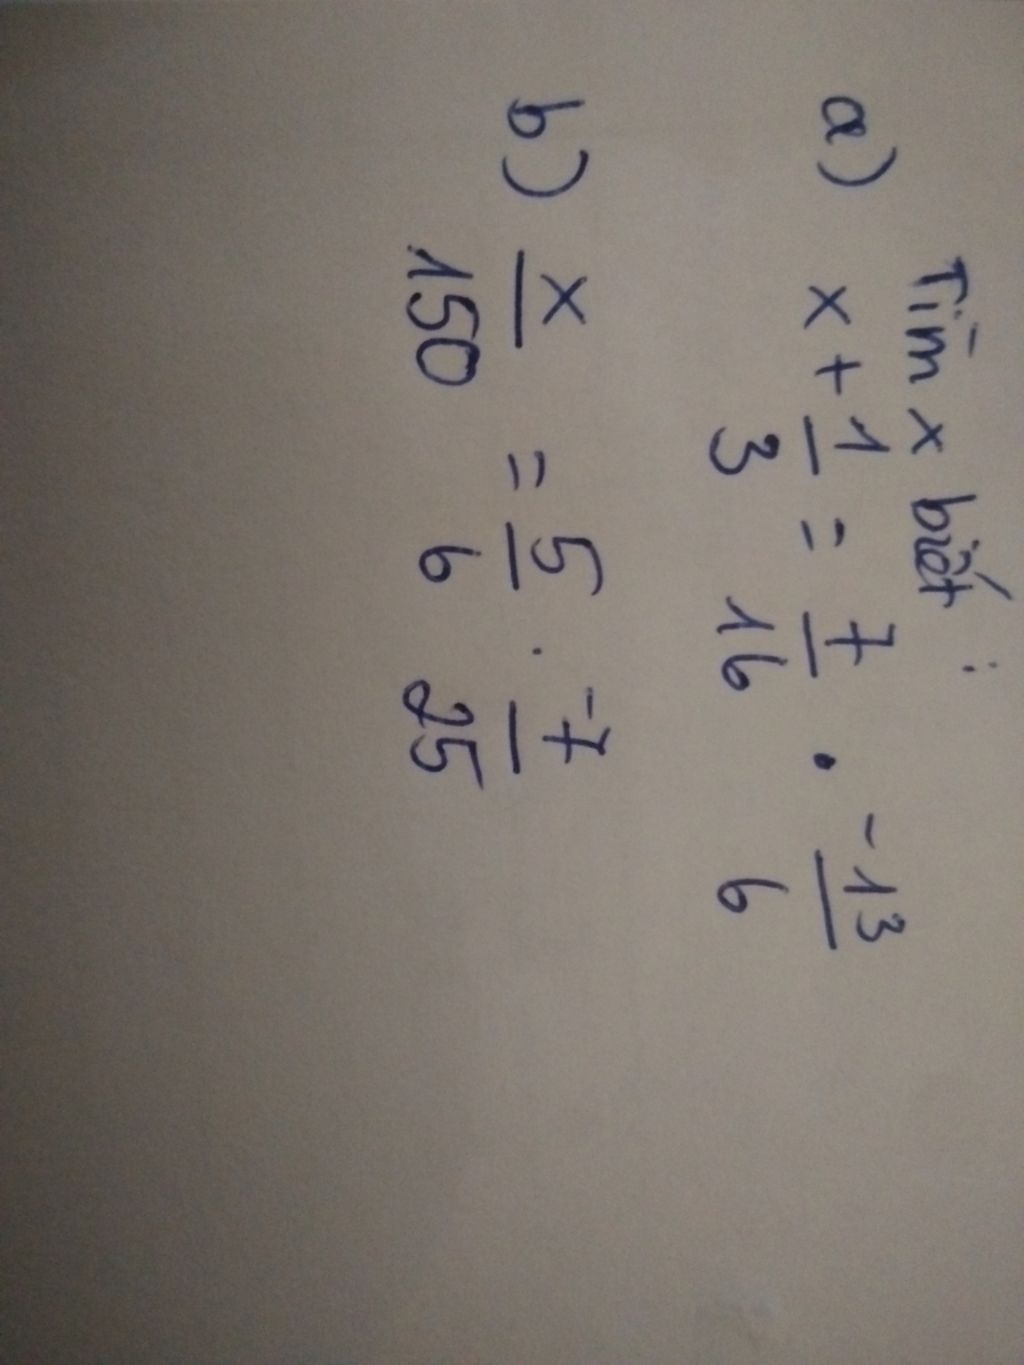 Tìm x biết :
a) x + 1/3 = 7/16 . -13/6
b) x/150 = 5/6 . -7/25